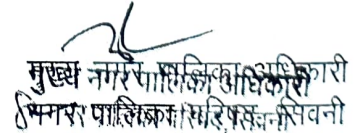 मुख्य नगर पालिका अधिकारी
नगर पालिका परिषद सिवनी